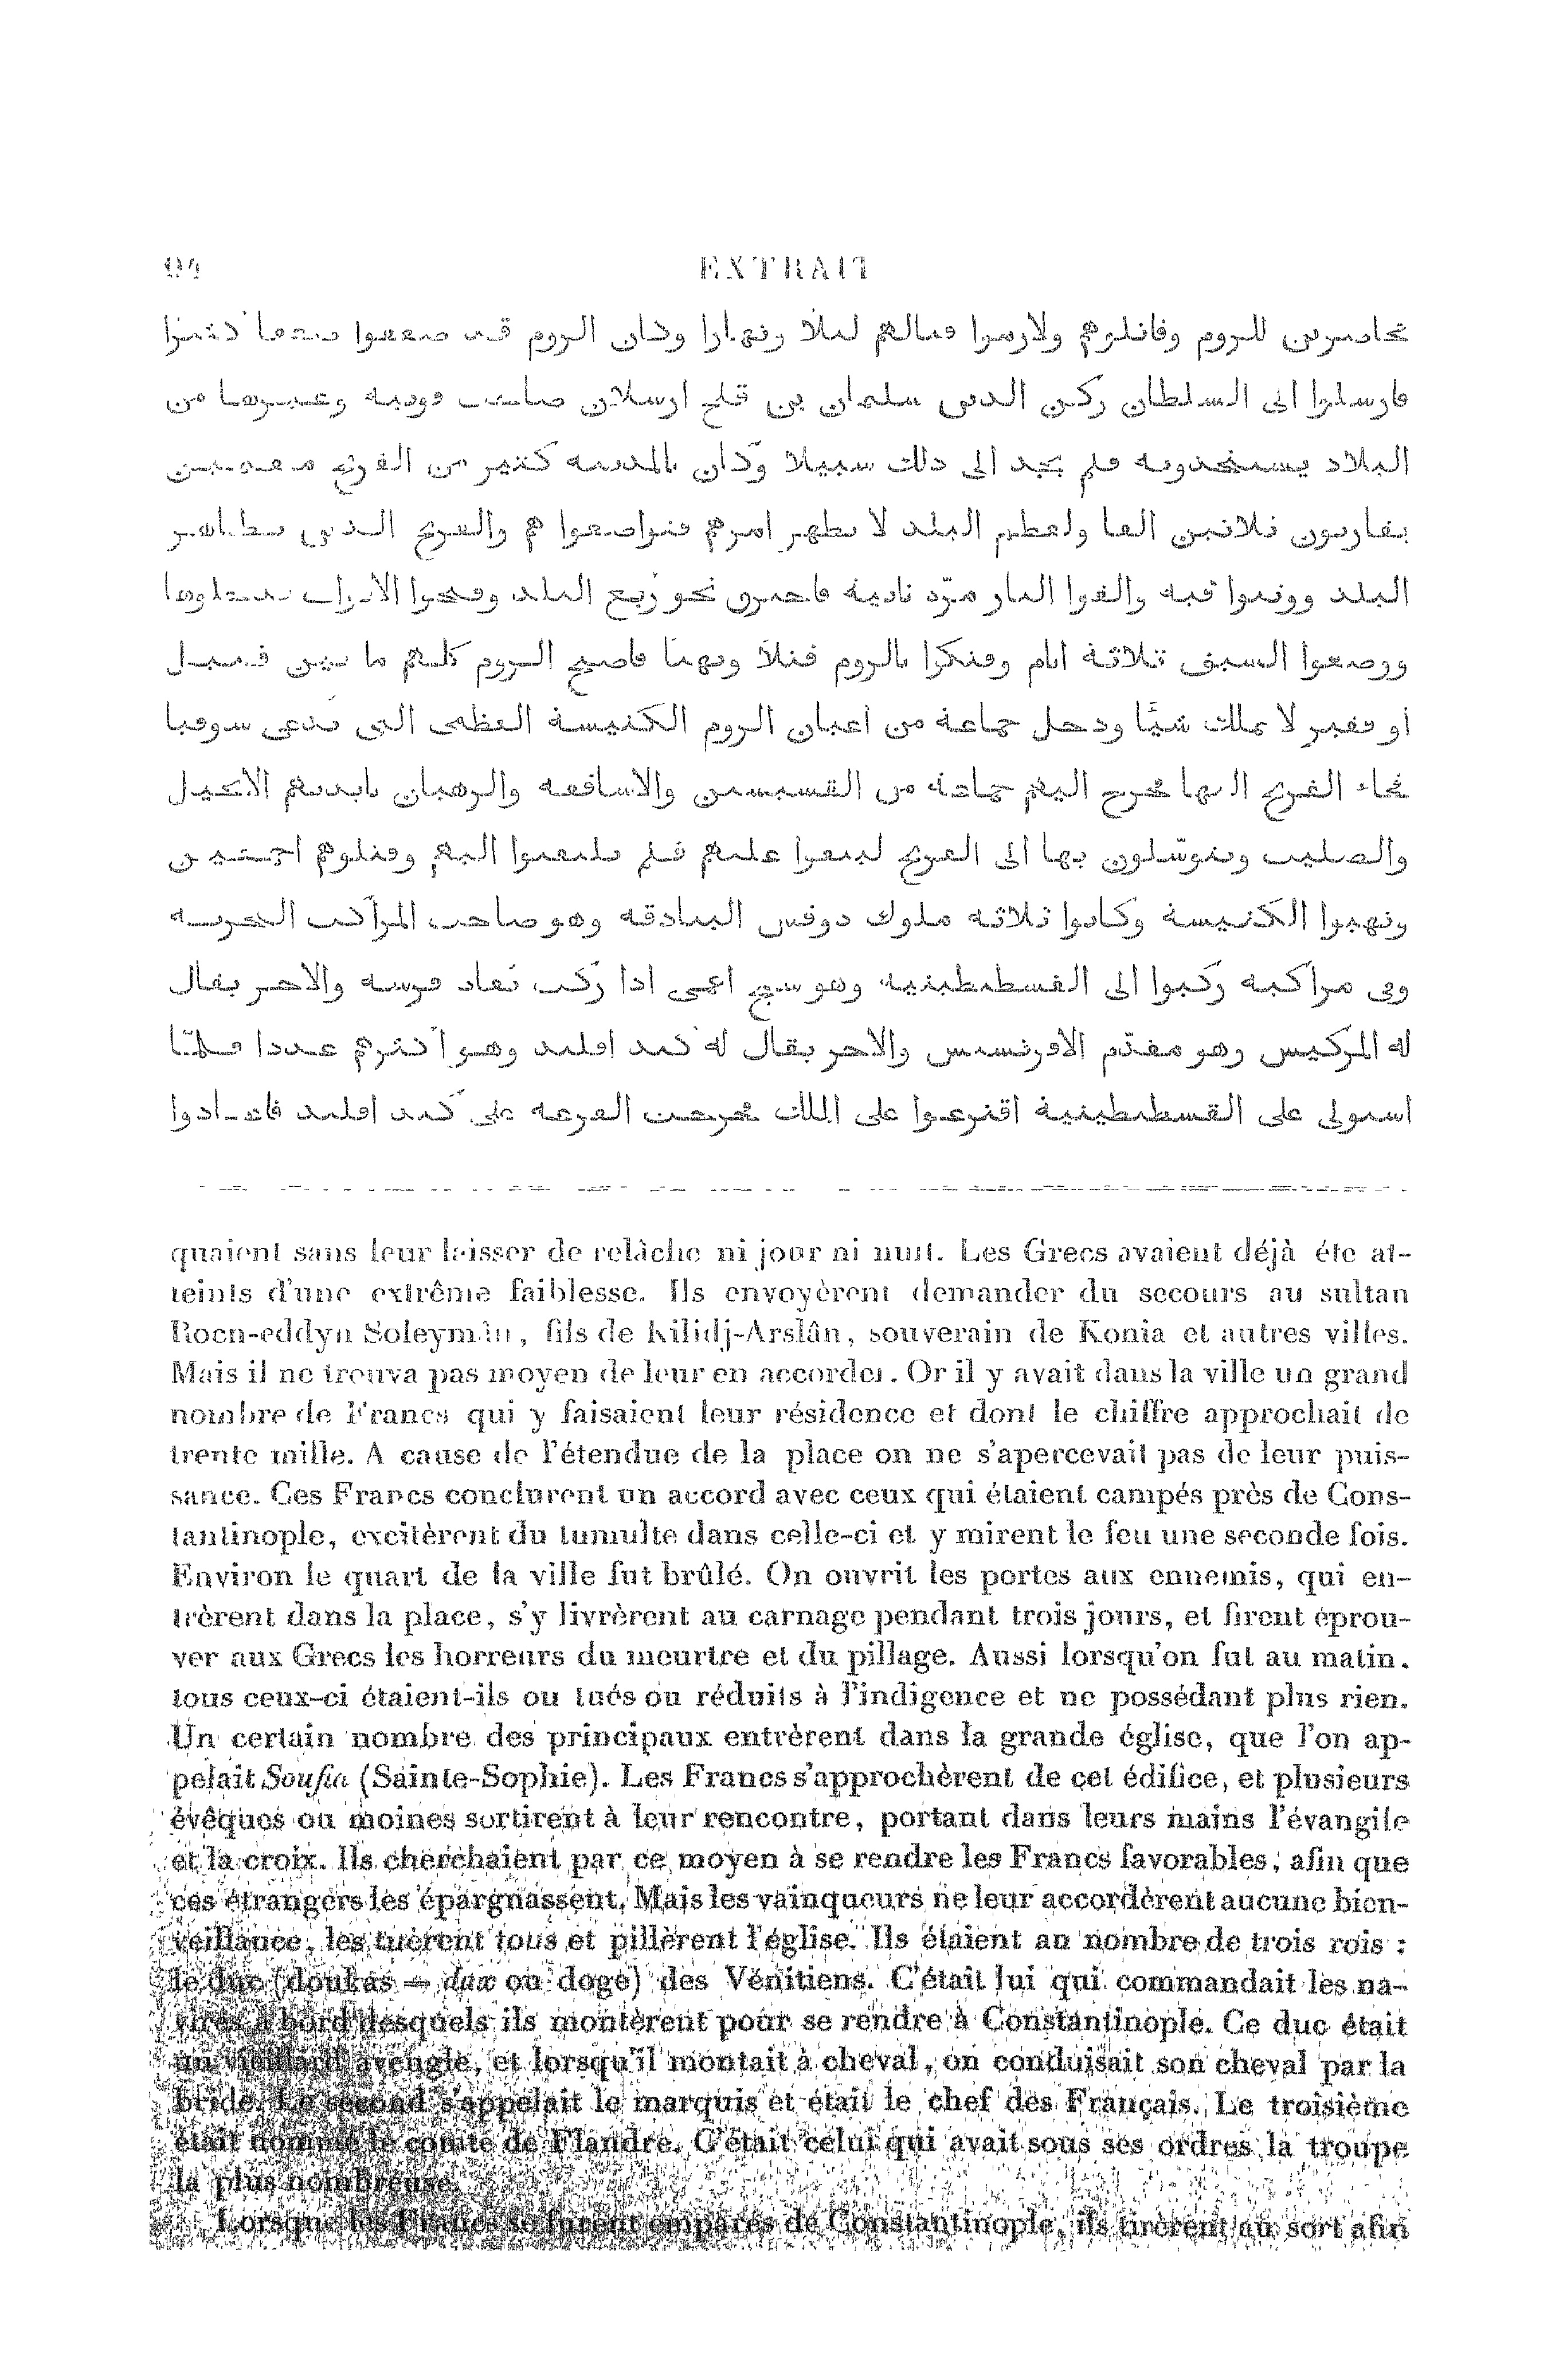 94 EXTRAIT
محاصرين للروم وقاتلوهم ولازموا قتالهم ليلا ونهارا وكان الروم قد ضعفوا ضعفا كثيرا
فارسلوا الى السلطان ركن الدين سليمان بن قلج ارسلان صاحب قونية وغيرها من
البلاد يستنجدونه فلم يجد الى ذلك سبيلا وكان بالمدينة كثير من الفرنج مقيمين
يقاربون ثلاثين الفا ولعظم البلد لا يظهر امرهم فتواضعوا هم والفرنج الذين بظاهر
البلد ووثبوا فيه والقوا النار مرّة ثانية فاحترق نحو ربع البلد وفتحوا الابواب فدخلوها
ووضعوا السيف ثلاثة ايام وفتكوا بالروم قتلا ونهبا فاصبح الروم كلهم ما بين قتيل
او فقير لا يملك شئًا ودخل جماعة من اعيان الروم الكنيسة العظمى التى تدعى سوفيا
فجاء الفرنج اليها فخرج اليهم جماعة من القسيسين والاساقفة والرهبان بايديهم الانجيل
والصليب ويتوسّلون بها الى الفرنج ليبقوا عليهم فلم يلتفتوا اليهم وقتلوهم اجمعين
ونهبوا الكنيسة وكانوا ثلاثة ملوك دوقس البنادقة وهو صاحب المراكب البحرية
وفى مراكبه ركبوا الى القسطنطينية وهو شيخ اعمى اذا ركب تقاد فرسه والاخر يقال
له المركيس وهو مقدّم الافرنسيس والاخر يقال له كند افلند وهو اكثرهم عددا فلمّا
استولى على القسطنطينية اقترعوا على الملك فخرجت القرعة على كند افلند فاعادوا
quaient sans leur laisser de relâche ni jour ni nuit. Les Grecs avaient déjà été at-
teints d'une extrême faiblesse. Ils envoyèrent demander du secours au sultan
Rocn-eddyn Soleymân, fils de Kilidj-Arslân, souverain de Konia et autres villes.
Mais il ne trouva pas moyen de leur en accorder. Or il y avait dans la ville un grand
nombre de Francs qui y faisaient leur résidence et dont le chiffre approchait de
trente mille. A cause de l'étendue de la place on ne s'apercevait pas de leur puis-
sance. Ces Francs conclurent un accord avec ceux qui étaient campés près de Cons-
tantinople, excitèrent du tumulte dans celle-ci et y mirent le feu une seconde fois.
Environ le quart de la ville fut brûlé. On ouvrit les portes aux ennemis, qui en-
trèrent dans la place, s'y livrèrent au carnage pendant trois jours, et firent éprou-
ver aux Grecs les horreurs du meurtre et du pillage. Aussi lorsqu'on fut au matin.
tous ceux-ci étaient-ils ou tués ou réduits à l'indigence et ne possédant plus rien.
Un certain nombre des principaux entrèrent dans la grande église, que l'on ap-
pelait Soufia (Sainte-Sophie). Les Francs s'approchèrent de cet édifice, et plusieurs
évêques ou moines sortirent à leur rencontre, portant dans leurs mains l'évangile
et la croix. Ils cherchaient par ce moyen à se rendre les Francs favorables, afin que
ces étrangers les épargnassent. Mais les vainqueurs ne leur accordèrent aucune bien-
veillance, les tuèrent tous et pillèrent l'église. Ils étaient au nombre de trois rois :
le duc (doukas = dux ou doge) des Vénitiens. C'était lui qui commandait les na-
vires à bord desquels ils montèrent pour se rendre à Constantinople. Ce duc était
un vieillard aveugle, et lorsqu'il montait à cheval, on conduisait son cheval par la
bride. Le second s'appelait le marquis et était le chef des Français. Le troisième
était nommé le comte de Flandre. C'était celui qui avait sous ses ordres la troupe
la plus nombreuse.
Lorsque les Francs se furent emparés de Constantinople, ils tirèrent au sort afin